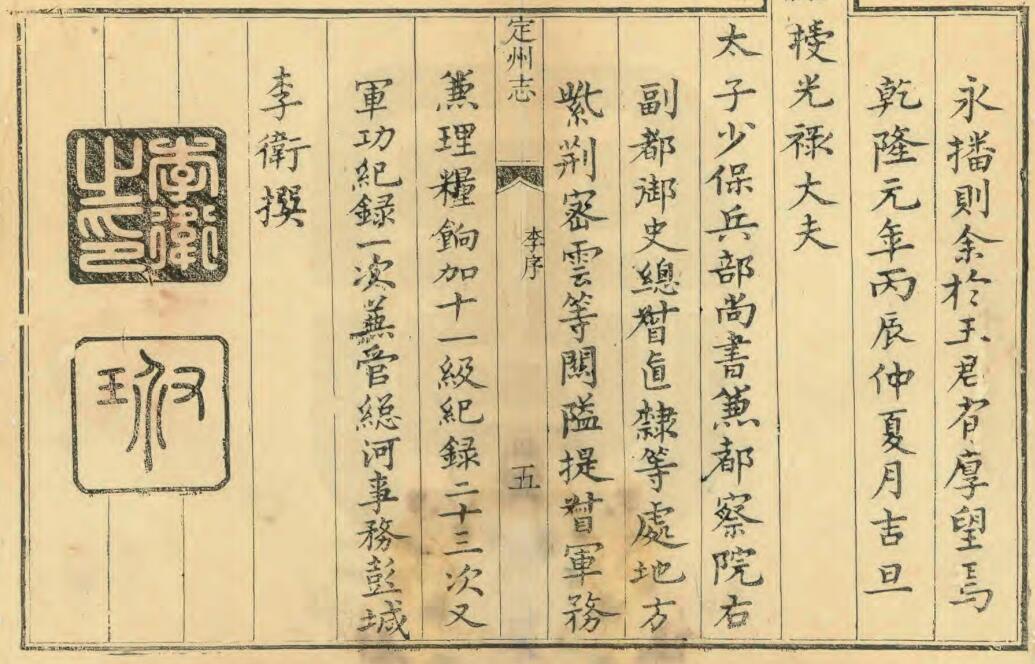 永播則余於王君有厚望焉
乾隆元年丙辰仲夏月吉旦
授光祿大夫
太子少保兵部尚書兼都察院右
副都御史總督直隸等處地方
紫荆密雲等關隘提督軍務
定州志
李序
五
兼理糧餉加十一級紀録二十三次又
軍功紀録一次兼管總河事務彭城
李衛撰
李衛之印